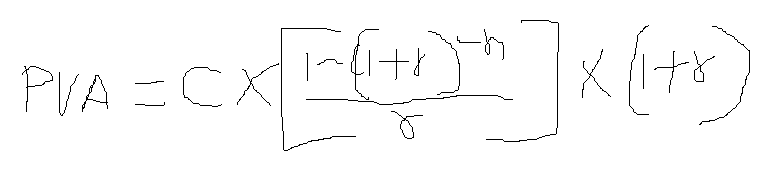 PVA = C × [1-(1+r)^-n / r] × (1+r)